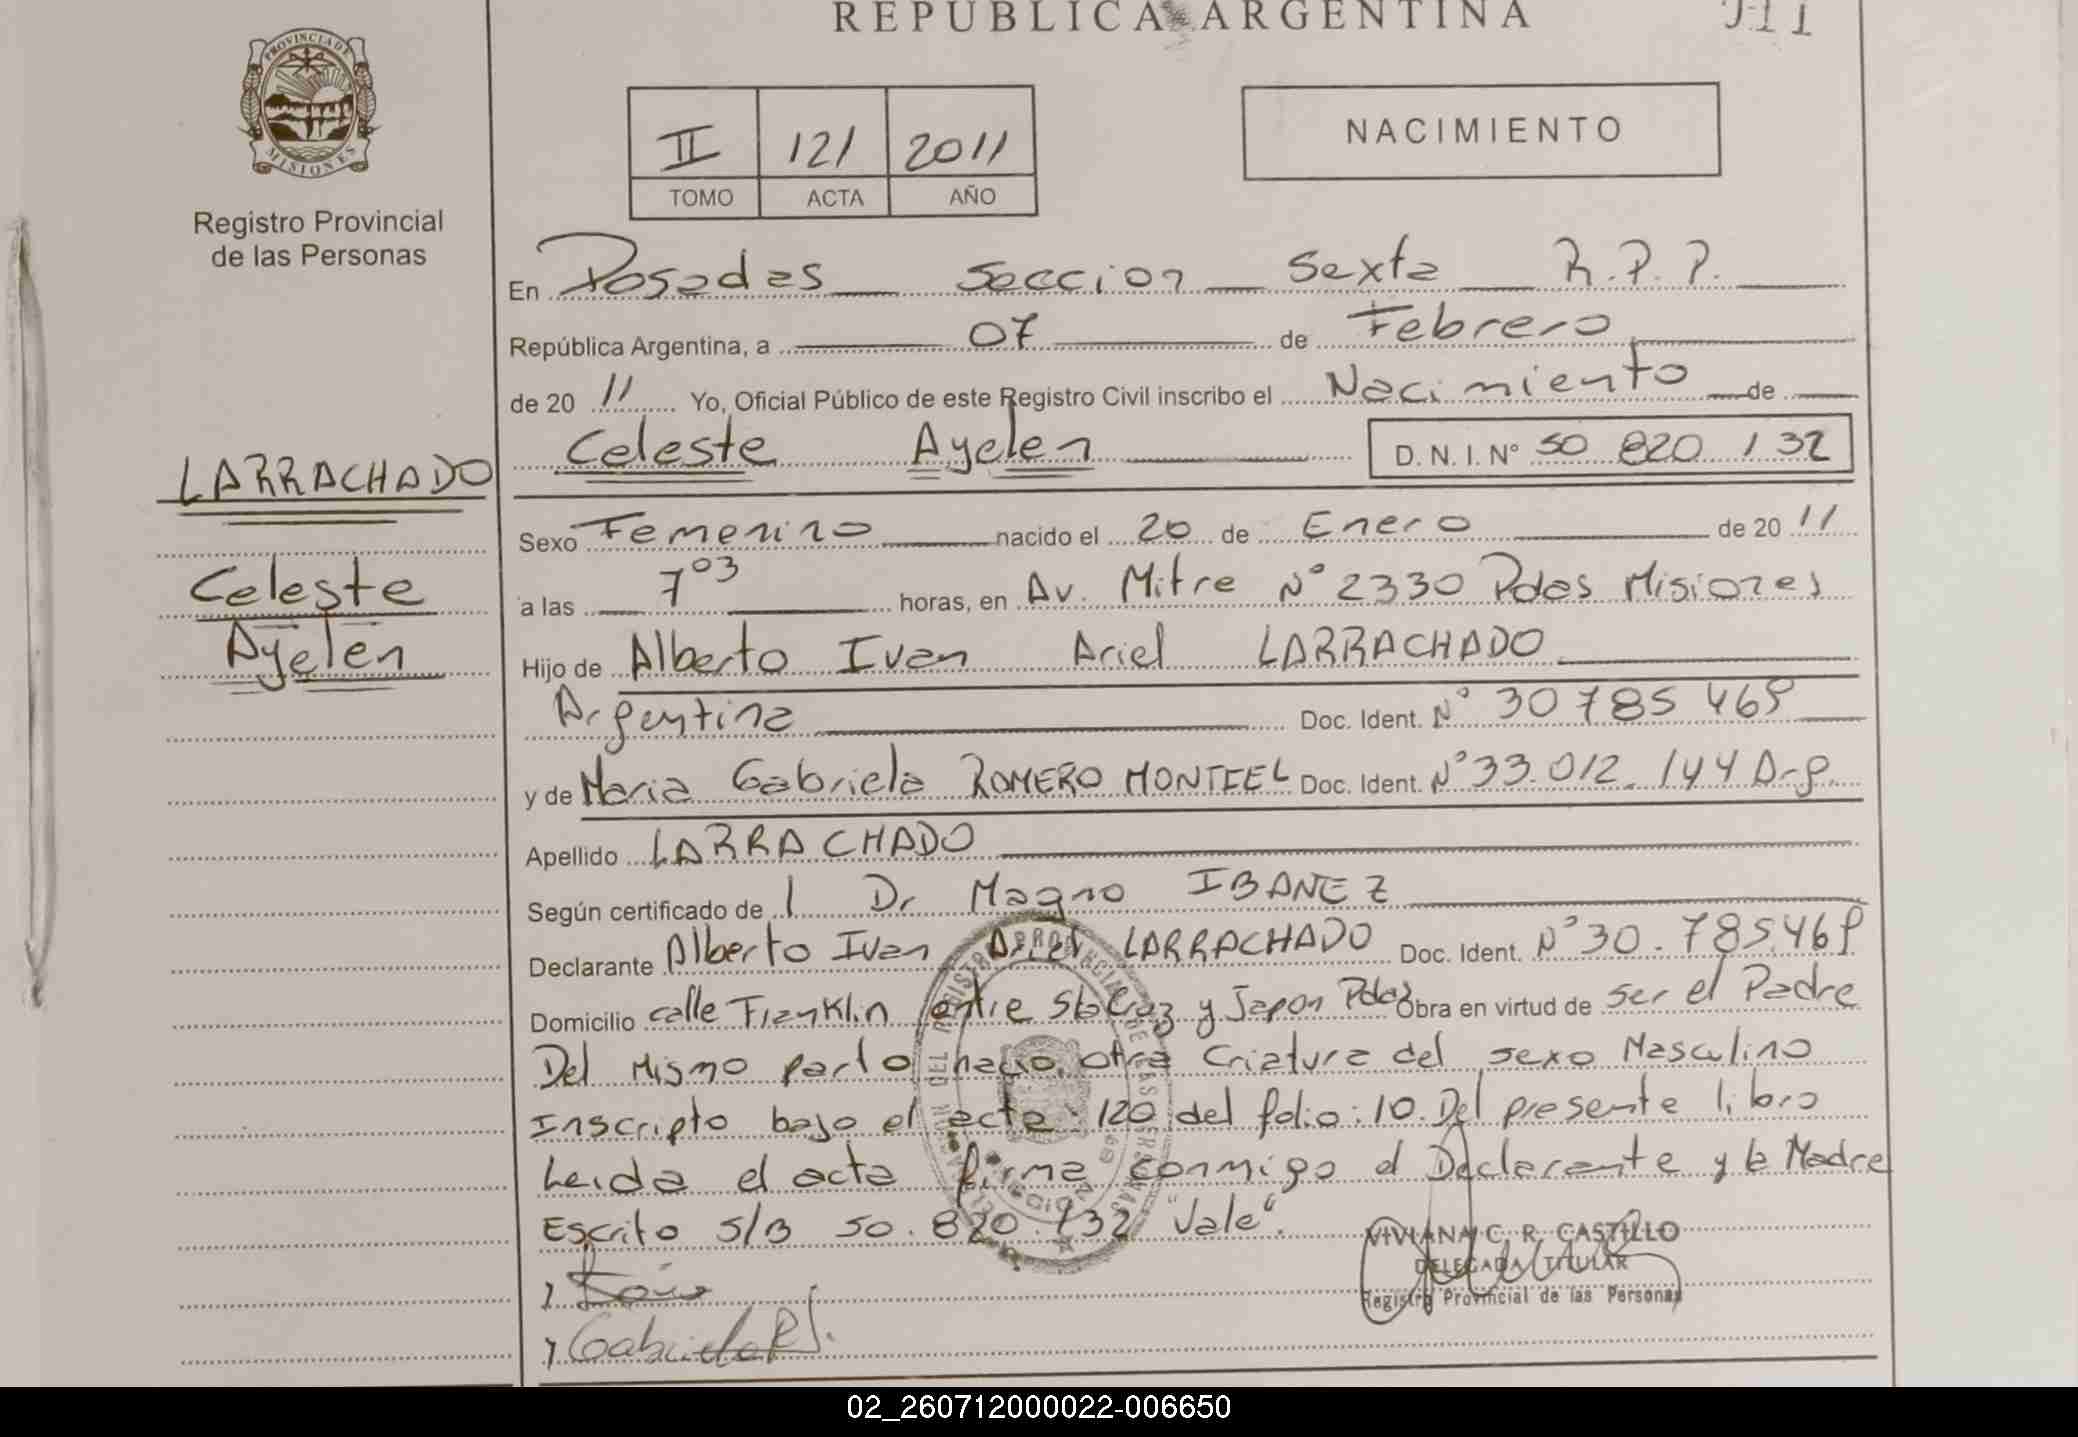 REPUBLICA ARGENTINA
PROVINCIA DE
MISIONES
Registro Provincial
de las Personas
II 121 2011
TOMO ACTA AÑO
NACIMIENTO
En Posadas Seccion Sexta R.P.P.
República Argentina, a 07 de Febrero
de 20 11 Yo, Oficial Público de este Registro Civil inscribo el Nacimiento de
Celeste Ayelen D. N. I. Nº 50 820 132
LARRACHADO
Celeste
Ayelen
Sexo Femenino nacido el 20 de Enero de 20 11
a las 7 03 horas, en Av. Mitre Nº 2330 Pdas Misiones
Hijo de Alberto Ivan Ariel LARRACHADO
Argentina Doc. Ident. Nº 30 785 469
y de Maria Gabriela ROMERO MONTEEL Doc. Ident. Nº 33.012.144 Arg.
Apellido LARRACHADO
Según certificado de l Dr Magno IBANEZ
Declarante Alberto Ivan Ariel LARRACHADO Doc. Ident. Nº 30.785.469
Domicilio calle Franklin entre Sta Cruz y Japon Pdas Obra en virtud de ser el Padre
Del Mismo parto nacio otra Criatura del sexo Masculino
Inscripto bajo el acta: 120 del folio: 10. Del presente libro
Leida el acta firma conmigo el Declarante y la Madre
Escrito S/B 50.820.132 "Vale".
VIVIANA C. R. CASTILLO
DELEGADA TITULAR
Registro Provincial de las Personas
02_260712000022-006650